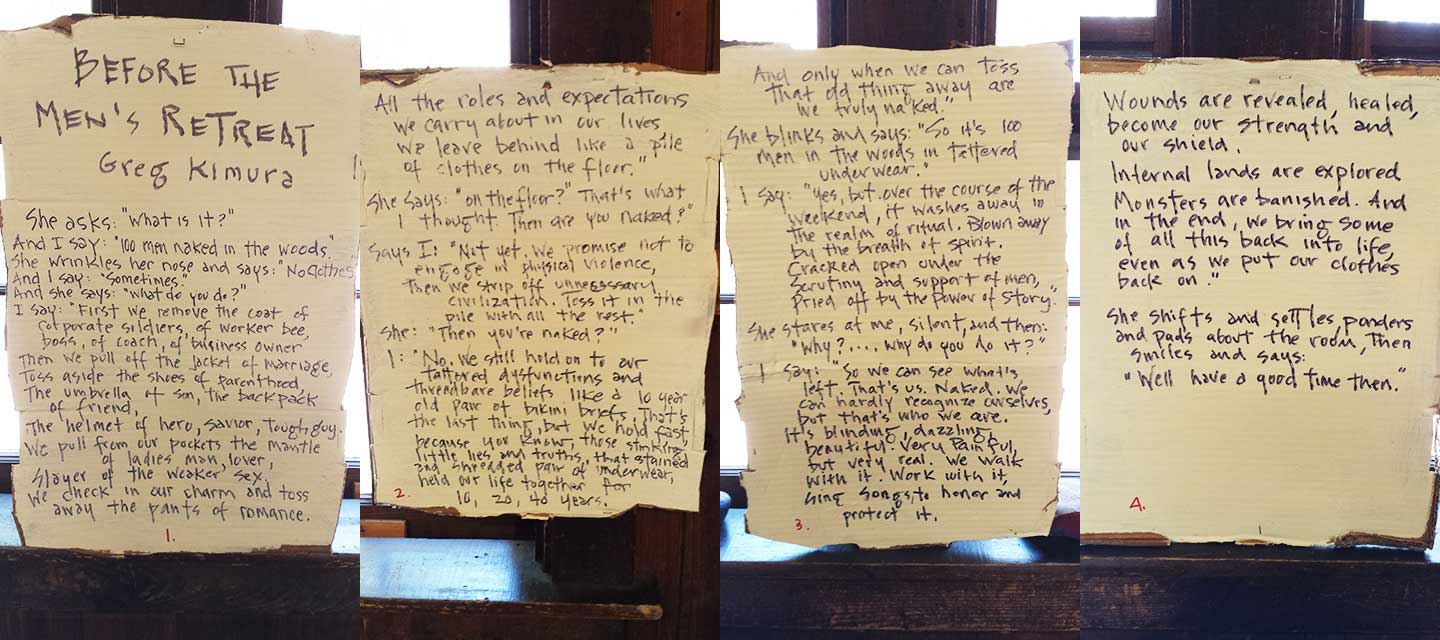 BEFORE THE
MEN'S RETREAT
Greg Kimura
She asks: "What is it?"
And I say: "100 men naked in the woods."
She wrinkles her nose and says: "No clothes?"
And I say: "Sometimes."
And she says: "What do you do?"
I say: "First we remove the coat of
corporate soldiers, of worker bee,
boss, of coach, of business owner
Then we pull off the jacket of marriage,
Toss aside the shoes of parenthood,
The umbrella of son, the backpack
of friend,
The helmet of hero, savior, tough guy.
We pull from our pockets the mantle
of ladies man, lover,
Slayer of the weaker sex.
We check in our charm and toss
away the pants of romance.
1.
All the roles and expectations
we carry about in our lives
we leave behind like a pile
of clothes on the floor."
She says: "on the floor?" That's what
I thought. Then are you naked?"
Says I: "Not yet. We promise not to
engage in physical violence,
Then we strip off unnecessary
civilization. Toss it in the
pile with all the rest."
She: "Then you're naked?"
I: "No, we still hold on to our
tattered dysfunctions and
threadbare beliefs like a 10 year
old pair of bikini briefs. That's
the last thing, but we hold fast
because you know, those stinking
little lies and truths, that stained
and shredded pair of underwear,
held our life together for
10, 20, 40 years.
2.
And only when we can toss
that old thing away are
we truly naked."
She blinks and says: "So it's 100
men in the woods in tattered
underwear."
I say: "Yes, but over the course of the
weekend, it washes away in
the realm of ritual. Blown away
by the breath of spirit.
Cracked open under the
scrutiny and support of men,
Pried off by the power of story."
She stares at me, silent, and then:
"Why?.... Why do you do it?"
I say: "So we can see what's
left. That's us. Naked. We
can hardly recognize ourselves,
but that's who we are.
It's blinding, dazzling,
beautiful. Very Painful,
but very real. We walk
with it. Work with it,
Sing songs, to honor and
protect it.
3.
Wounds are revealed, healed,
become our strength and
our shield.
Internal lands are explored
Monsters are banished. And
in the end, we bring some
of all this back into life,
even as we put our clothes
back on."
She shifts and settles, ponders
and pads about the room, Then
smiles and says:
"Well have a good time then."
4.